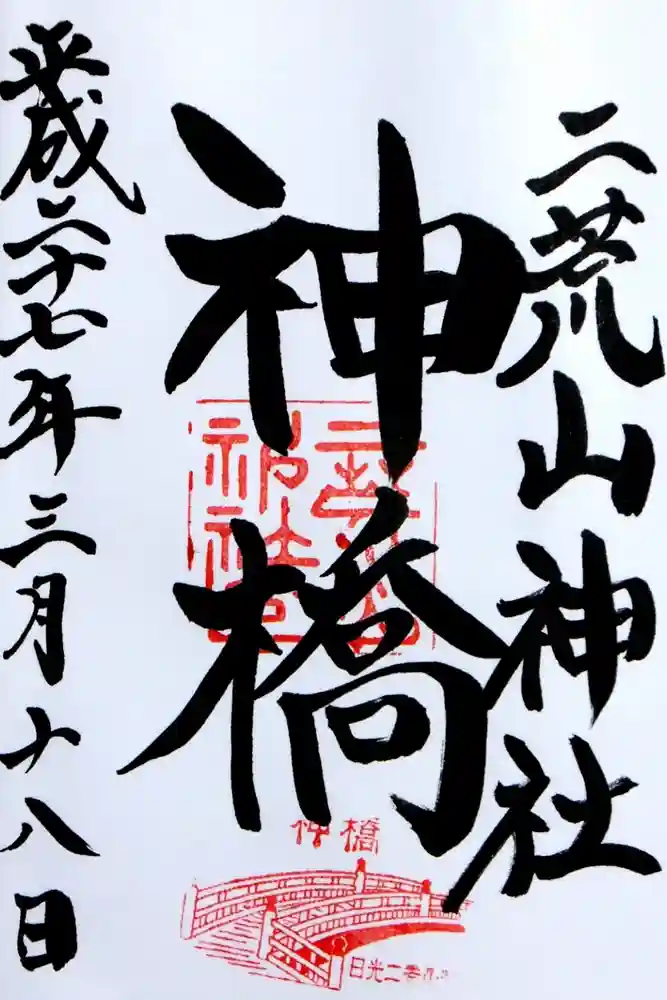 二荒山神社
神橋
平成二十七年三月十八日
二荒山神社
神橋
日光二荒